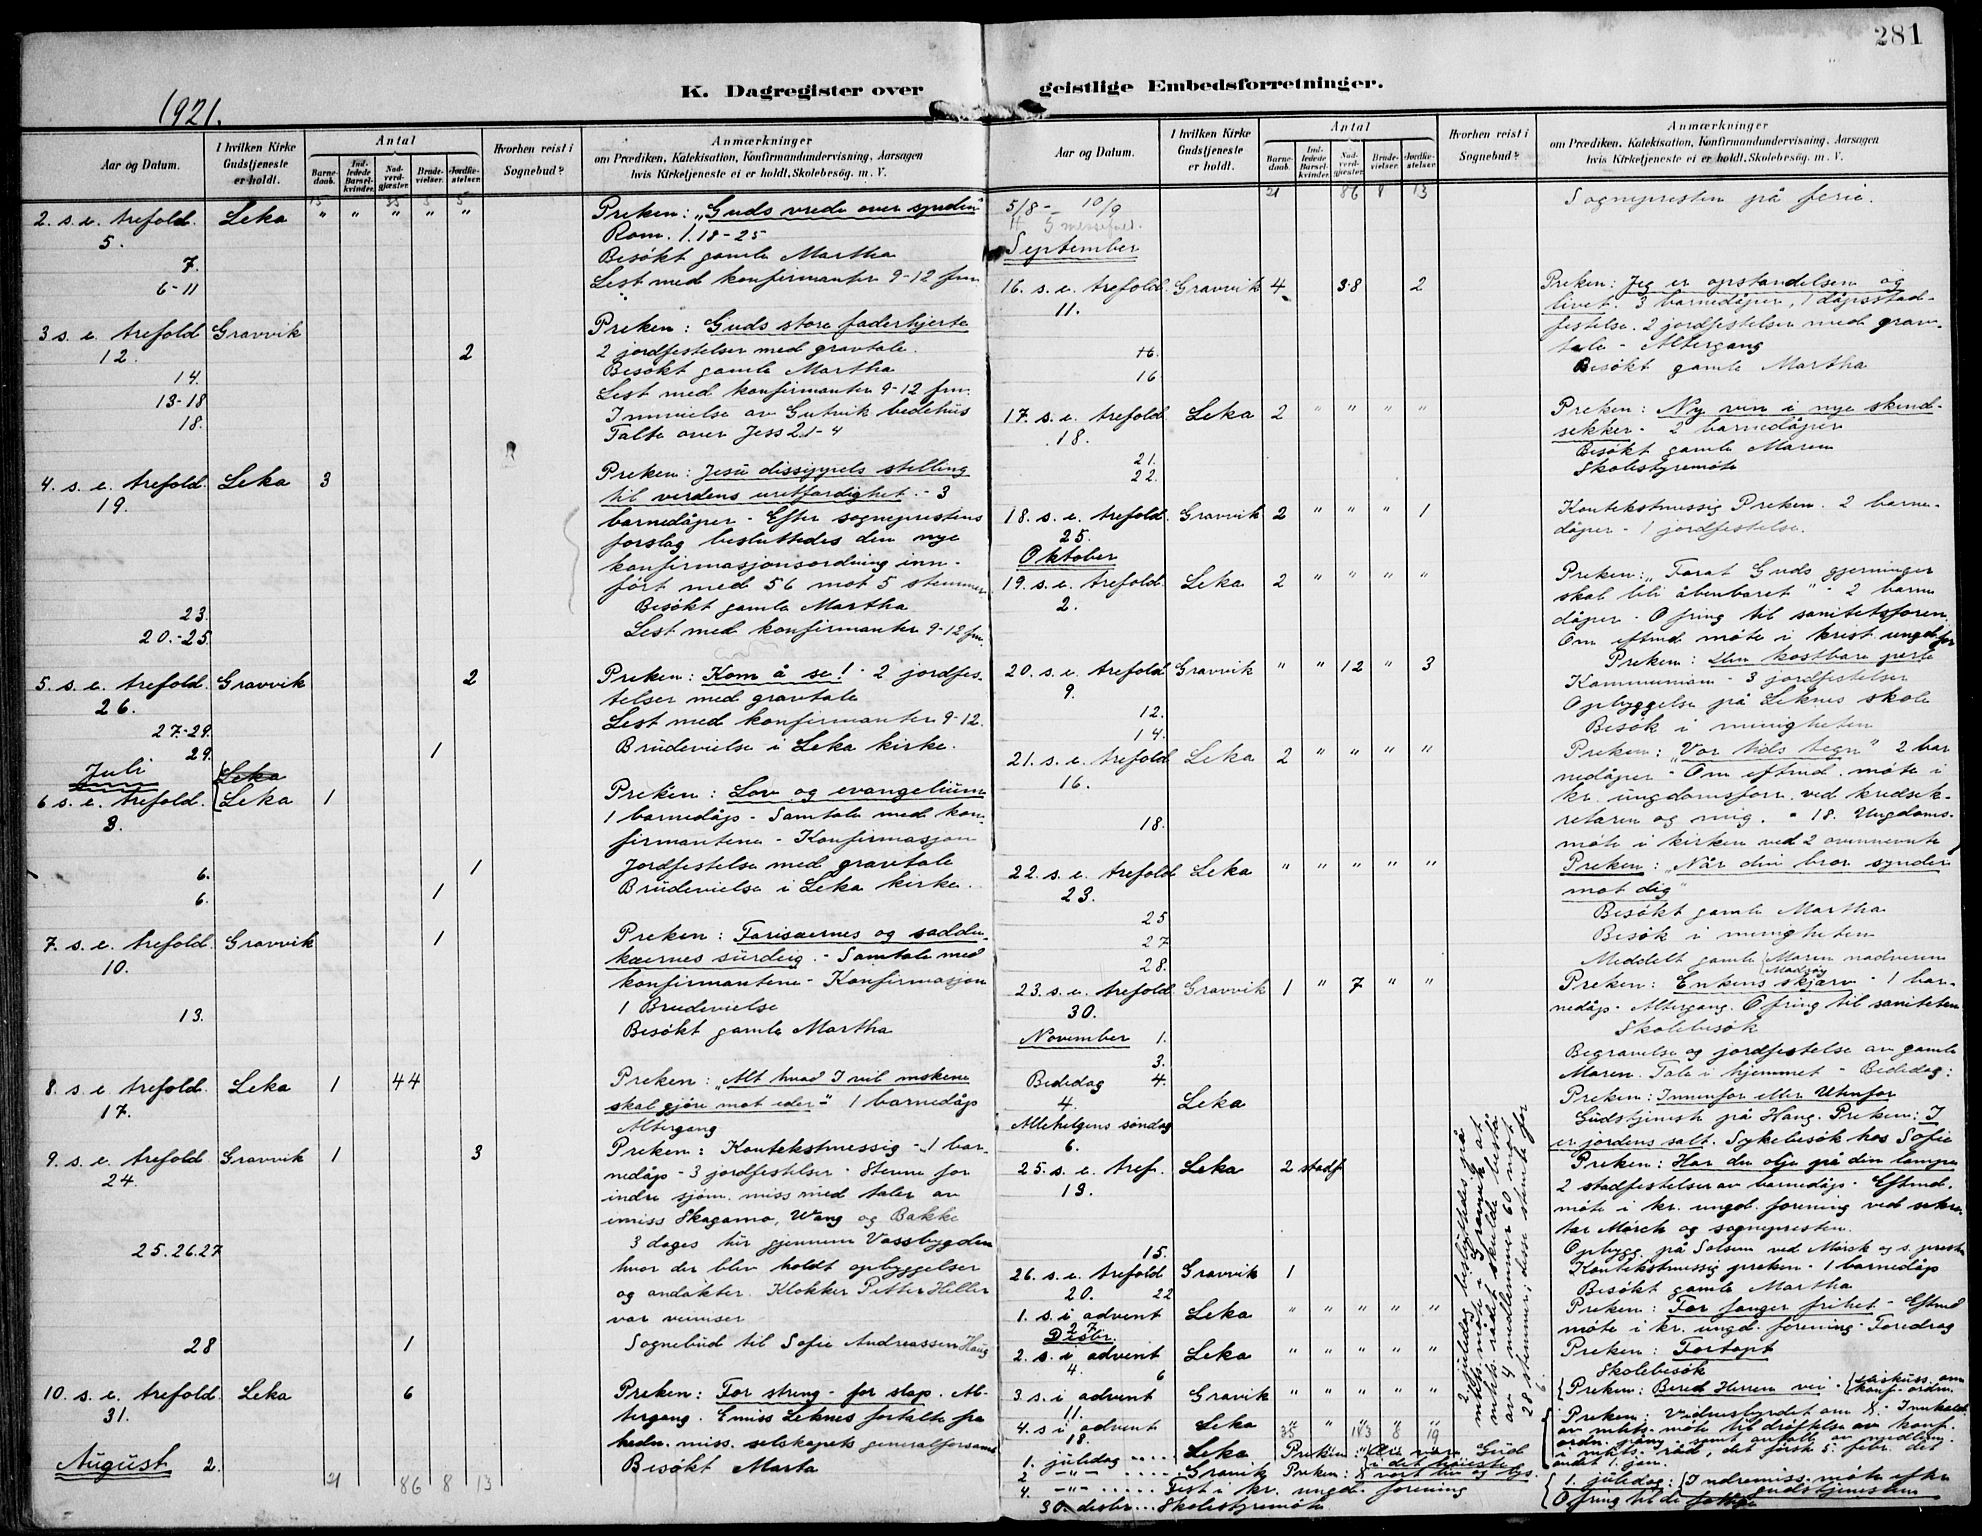 281
K. Dagregister over geistlige Embedsforretninger.
1921.
Aar og Datum.
I hvilken Kirke Gudstjeneste er holdt.
Antal
Barnedaab.
Indledede Barselkvinder.
Nadverdgjæster.
Brudevielser.
Jordfæstelser.
Hvorhen reist i Sognebud?
Anmærkninger
om Prædiken, Katekisation, Konfirmandundervisning, Aarsagen
hvis Kirketjeneste ei er holdt, Skolebesøg. m. V.
15 35 5 5
2. s. e. trefold. Leka " " " " " Preken: "Guds vrede over synden"
5. Rom. 1.18-25
7. Besøkt gamle Martha
6-11 Lest med konfirmanter 9-12 fm.
3 s. e. trefold Gravvik Preken: Guds store faderhjerte
12. 2 2 jordfestelser med gravtale.
14. Besøkt gamle Martha
13-18 Lest med konfirmanter 9-12 fm.
18. Innvielse av Gutvik bedehus
Talte over Jess 2.1-4
4. s. e. trefold. Leka 3 Preken: Jesu dissipels stelling
19. til verdens uretfærdighet. - 3
barnedåper - Efter sogneprestens
forslag besluttedes den nye
konfirmasjonsordning inn-
ført med 56 mot 5 stemmer
23. Besøkt gamle Martha
20.-25. Lest med konfirmanter 9-12 fm.
5. s. e. trefold. Gravvik 2 Preken: Kom å se! - 2 jordfes-
26. telser med gravtale
27.-29. Lest med konfirmanter 9-12.
29. 1 Brudevielse i Leka kirke.
Juli Leka
6 s. e. trefold. Leka 1 Preken: Lov og evangelium
3. 1 barnedåp - Samtale med kon-
firmantene - Konfirmasjon
6. 1 Jordfestelse med gravtale
6. 1 Brudevielse i Leka kirke.
7. s. e. trefold. Gravvik 1 Preken: Fariseernes og saddu-
10. kæernes surdeig. - Samtale med
konfirmantene - Konfirmasjon
1 Brudevielse
13. Besøkt gamle Martha
8. s. e. trefold. Leka 1 44 Preken: "Alt hvad I vil mskene
17. skal gjøre mot eder" 1 barnedåp
Altergang
9. s. e. trefold Gravvik 1 3 Preken: Kontekstmessig - 1 bar-
24. nedåp - 3 jordfestelser - Stevne for
indre sjøm. miss med taler av
emiss Skagamo, Wang og Bakke
25.26.27 3 dages tur gjennem Vassbygden
hvor der blev holdt opbyggelser
og andakter. Klokker Petter Heller
var veiviser
28 1 Sognebud til Sofie Andreassen Haug
10. s. e. trefold. Leka 6 Preken: For streng - for slap. Al-
31. tergang. Emiss Leknes fortalte fra
hedn. miss. selskapets generalforsaml
August 2. Besøkt Marta
21 86 8 13
Aar og Datum.
I hvilken Kirke Gudstjeneste er holdt.
Antal
Barnedaab.
Indledede Barselkvinder.
Nadverdgjæster.
Brudevielser.
Jordfæstelser.
Hvorhen reist i Sognebud?
Anmærkninger
om Prædiken, Katekisation, Konfirmandundervisning, Aarsagen
hvis Kirketjeneste ei er holdt, Skolebesøg. m. V.
21 86 8 13
5/8 - 10/9 Sognepresten på ferie.
5 messefald.
September
16. s. e. trefold. Gravvik 4 38 2 Preken: Jeg er opstandelsen og
11. livet. 3 barnedåper, 1 dåpsstad-
festelse. 2 jordfestelser med grav-
16. tale - Altergang
16 Besøkt gamle Martha
17. s. e. trefold Leka 2 " " " " Preken: Ny vin i nye skind-
18. sekker - 2 barnedåper
21. Besøkt gamle Maren
22. Skolestyremøte
18. s. e. trefold. Gravvik 2 " " " 1 Kontekstmessig Preken. 2 barne-
25. dåper - 1 jordfestelse.
Oktober
19. s. e. trefold. Leka 2 " " " " Preken: "Forat Guds gjerninger
2. skal bli åbenbaret" - 2 barne
dåper - Ofring til sanitetsforen.
Om eftmd møte i krist ungd. for
20. s. e. trefold Gravvik " " 12 " 3 Preken: Den kostbare perle
9. Kommunion - 3 jordfestelser
12. Opbyggelse på Leknes skole
14. Besøk i menigheten
21. s. e. trefold Leka 2 " " " " Preken: "Vor tids tegn" 2 bar
16. nedåper - Om eftmd. møte i
kr. ungdomsforr. ved kredsek-
18. retæren og mig. - 18. Ungdoms-
møte i kirken ved 2 ovennevnte
22. s. e. trefold Leka " " " " " Preken: "Når din bror synder
23. mot dig"
25 Besøkt gamle Martha
27 Besøk i menigheten
28. Meddelt gamle Maren Madsøy nadveren
23. s. e. trefold. Gravvik 1 " 7 " " Preken: Enkens skjærv - 1 bar-
30. nedåp - Altergang. Ofring til saniteten
November 1. Skolebesøk
3. Begravelse og jordfestelse av gamle
Bededag 4. Maren. Tale i hjemmet - Bededag:
4. Leka Preken: Innenfor eller Utenfor
Allehelgens søndag Gudstjeneste på Haug. Preken: I
6. er jordens salt. Sykebesøk hos Sofie
25. s. e. tref. Leka 2 stadf. Preken: Har du olje på din lampe
13. 2 stadfestelser av barnedåp - Eftmd.
møte i kr. ungd. forening ved sekre-
tær Mørch og sognepresten.
15. Opbygg. på Solsem ved Mørch og s. prest
26. s. e. trefold Gravvik 1 Kontekstmessig preken - 1 barnedåp
20. 22 Besøkt gamle Martha
1. s. i advent Leka " " " " " Preken: For fanger frihet - Eftmd
27. møte i kr. ungd. forening - Foredrag
Desbr.
2. s. i advent Leka " " " " " Preken: Fortapt
4. 6 Skolebesøk
3. s. i advent Gravik " " " " " Preken: Bered Herren vei - diskuss. om konf. ordn.
11.
4. s i advent Leka " " " " " Preken: Vidnesbyrdet om 8. - Innkaldt
18. 35 143 8 19 av mkts. møte til drøftelse av konf.
ordn. samt antall av medlem.
i mkts. råd, det første 5 febr. det
andet 1. jan.
1. juledag .... Leka Preken: "Ære være Gud i det høieste"
2 -"- .... Gravik Preken: vort liv og lys.
4. -"- .... Fest i kr. ungd. forening
30. desbr... Skolestyremøte
1. juledag: Indremiss. møte efter gudstjenesten
Ofring til de fattige
2. juledag besluttedes på
mkts. møte i Gravvik at
mkts. rådet skulde bestå
av 4 medlemmer 60 mot
28 stemmer; disse stemte for
6.